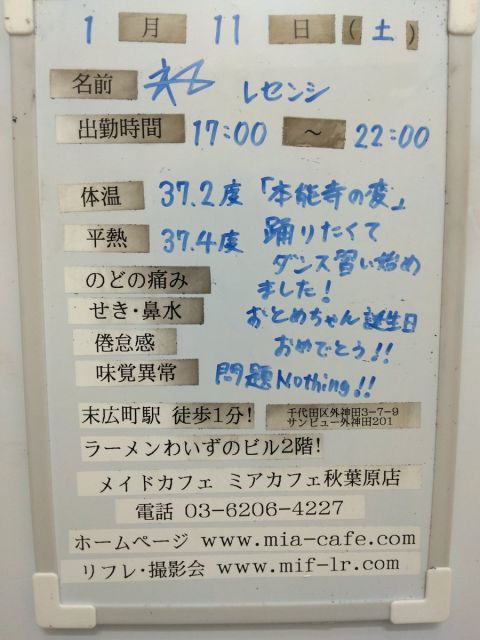 1 月 11 日 (土)
名前 レセンシ
出勤時間 17:00 ～ 22:00
体温 37.2度 「本能寺の変」
平熱 37.4度 踊りたくて
ダンス習い始め
のどの痛み ました!
せき・鼻水 おとめちゃん誕生日
倦怠感 おめでとう!!
味覚異常 問題Nothing!!
末広町駅 徒歩1分! 千代田区外神田3-7-9
サンビュー外神田201
ラーメンわいずのビル2階!
メイドカフェ ミアカフェ秋葉原店
電話 03-6206-4227
ホームページ www.mia-cafe.com
リフレ・撮影会 www.mif-lr.com